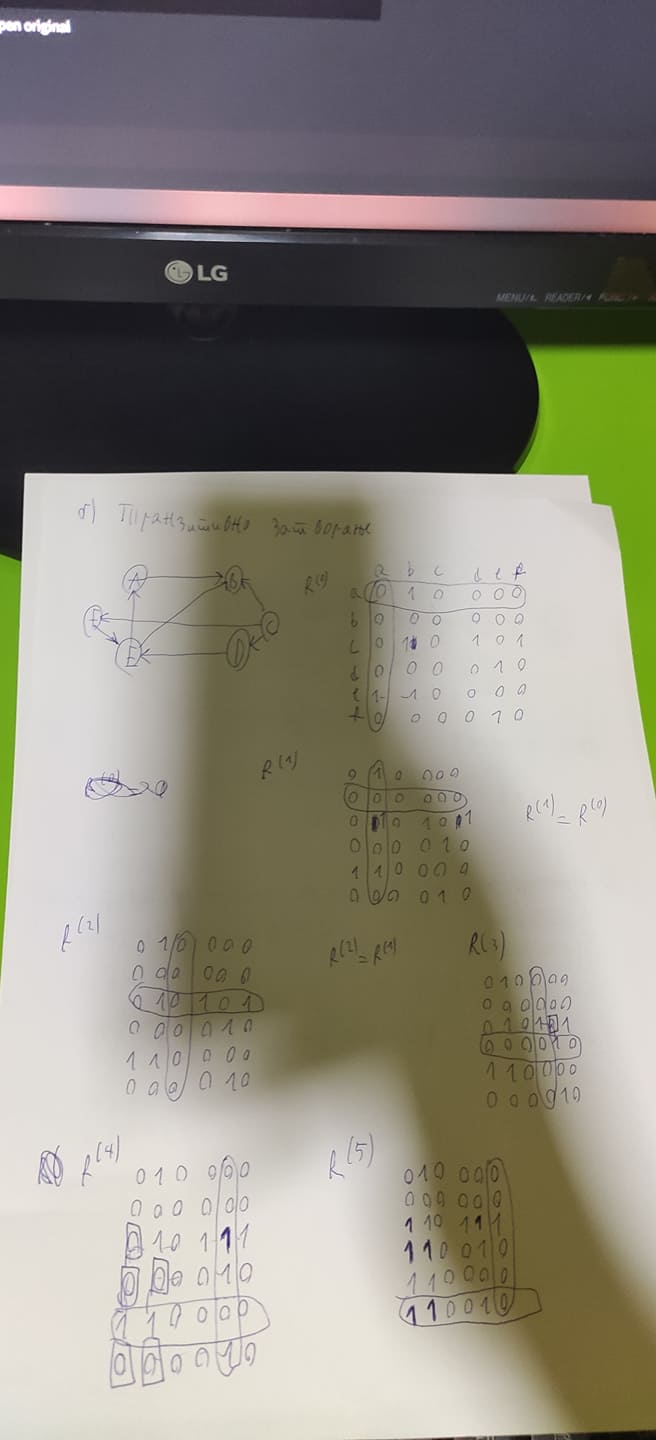 pen original
LG
MENU/ READER/ FUNC
б) Транзитивно затворање
A B
F C
E D
R(0)
a b c d e f
a 0 1 0 0 0 0
b 0 0 0 0 0 0
c 0 1 0 1 0 1
d 0 0 0 0 1 0
e 1 1 0 0 0 0
f 0 0 0 0 1 0
R(1)
0 1 0 0 0 0
0 0 0 0 0 0
0 1 0 1 0 1
0 0 0 0 1 0
1 1 0 0 0 0
0 0 0 0 1 0
R(1) = R(0)
R(2)
0 1 0 0 0 0
0 0 0 0 0 0
0 1 0 1 0 1
0 0 0 0 1 0
1 1 0 0 0 0
0 0 0 0 1 0
R(2) = R(1)
R(3)
0 1 0 0 0 0
0 0 0 0 0 0
0 1 0 1 0 1
0 0 0 0 1 0
1 1 0 0 0 0
0 0 0 0 1 0
R(4)
0 1 0 0 0 0
0 0 0 0 0 0
0 1 0 1 1 1
0 0 0 0 1 0
1 1 0 0 0 0
0 0 0 0 1 0
R(5)
0 1 0 0 0 0
0 0 0 0 0 0
1 1 0 1 1 1
1 1 0 0 1 0
1 1 0 0 0 0
1 1 0 0 1 0